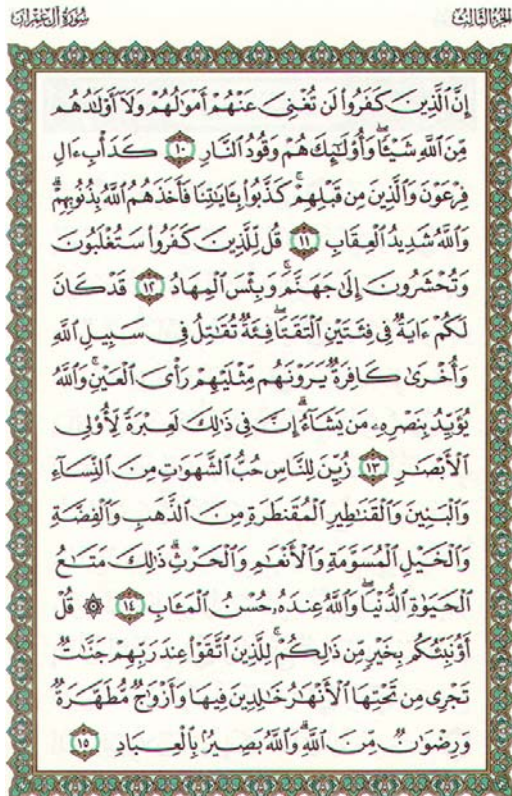 سُورَةُ آلِ عِمْرَانَ
الجُزْءُ الثَّالِثُ
إِنَّ ٱلَّذِينَ كَفَرُوا۟ لَن تُغْنِىَ عَنْهُمْ أَمْوَٰلُهُمْ وَلَآ أَوْلَٰدُهُم
مِّنَ ٱللَّهِ شَيْـًٔا ۖ وَأُو۟لَٰٓئِكَ هُمْ وَقُودُ ٱلنَّارِ ١٠ كَدَأْبِ ءَالِ
فِرْعَوْنَ وَٱلَّذِينَ مِن قَبْلِهِمْ ۚ كَذَّبُوا۟ بِـَٔايَٰتِنَا فَأَخَذَهُمُ ٱللَّهُ بِذُنُوبِهِمْ ۗ
وَٱللَّهُ شَدِيدُ ٱلْعِقَابِ ١١ قُل لِّلَّذِينَ كَفَرُوا۟ سَتُغْلَبُونَ
وَتُحْشَرُونَ إِلَىٰ جَهَنَّمَ ۚ وَبِئْسَ ٱلْمِهَادُ ١٢ قَدْ كَانَ
لَكُمْ ءَايَةٌ فِى فِئَتَيْنِ ٱلْتَقَتَا ۖ فِئَةٌ تُقَٰتِلُ فِى سَبِيلِ ٱللَّهِ
وَأُخْرَىٰ كَافِرَةٌ يَرَوْنَهُم مِّثْلَيْهِمْ رَأْىَ ٱلْعَيْنِ ۚ وَٱللَّهُ
يُؤَيِّدُ بِنَصْرِهِۦ مَن يَشَآءُ ۗ إِنَّ فِى ذَٰلِكَ لَعِبْرَةً لِّأُو۟لِى
ٱلْأَبْصَٰرِ ١٣ زُيِّنَ لِلنَّاسِ حُبُّ ٱلشَّهَوَٰتِ مِنَ ٱلنِّسَآءِ
وَٱلْبَنِينَ وَٱلْقَنَٰطِيرِ ٱلْمُقَنطَرَةِ مِنَ ٱلذَّهَبِ وَٱلْفِضَّةِ
وَٱلْخَيْلِ ٱلْمُسَوَّمَةِ وَٱلْأَنْعَٰمِ وَٱلْحَرْثِ ۗ ذَٰلِكَ مَتَٰعُ
ٱلْحَيَوٰةِ ٱلدُّنْيَا ۖ وَٱللَّهُ عِندَهُۥ حُسْنُ ٱلْمَـَٔابِ ١٤ ۞ قُلْ
أَؤُنَبِّئُكُم بِخَيْرٍ مِّن ذَٰلِكُمْ ۚ لِلَّذِينَ ٱتَّقَوْا۟ عِندَ رَبِّهِمْ جَنَّٰتٌ
تَجْرِى مِن تَحْتِهَا ٱلْأَنْهَٰرُ خَٰلِدِينَ فِيهَا وَأَزْوَٰجٌ مُّطَهَّرَةٌ
وَرِضْوَٰنٌ مِّنَ ٱللَّهِ ۗ وَٱللَّهُ بَصِيرٌۢ بِٱلْعِبَادِ ١٥